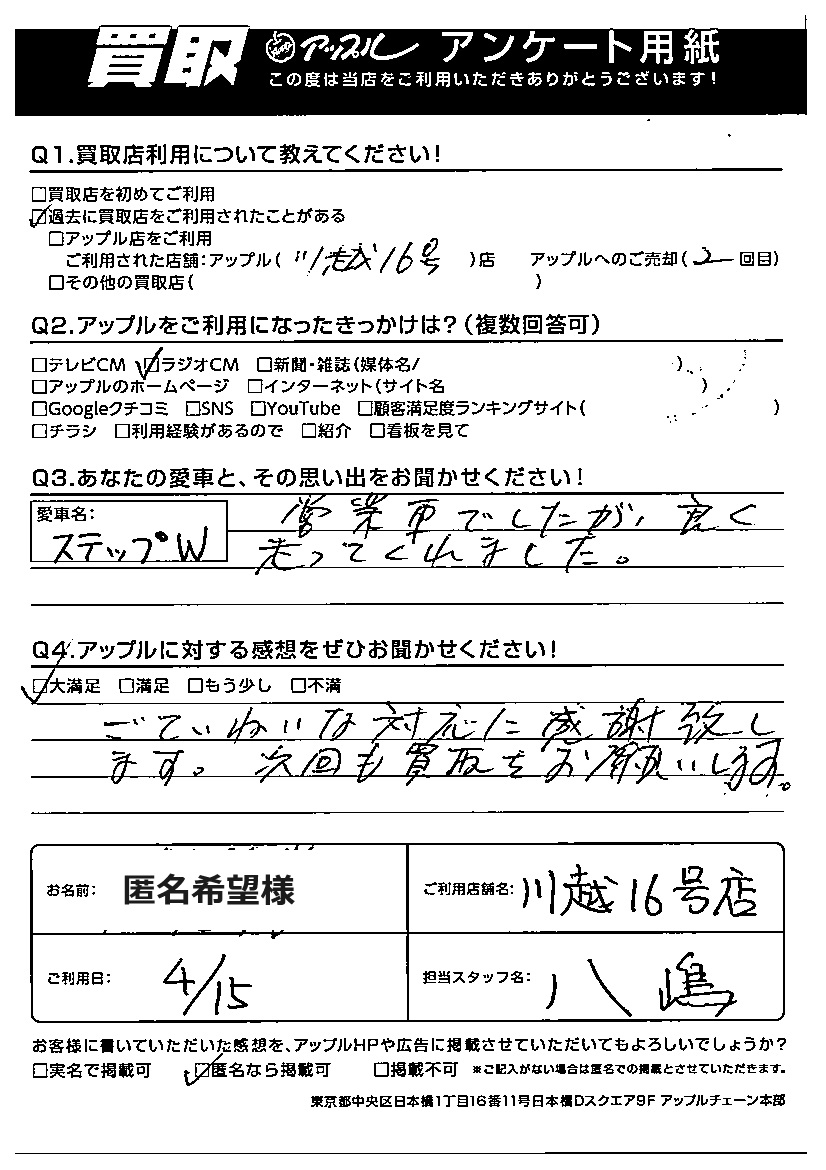 買取 アップル アンケート用紙
この度は当店をご利用いただきありがとうございます!
Q1.買取店利用について教えてください!
□買取店を初めてご利用
☑過去に買取店をご利用されたことがある
□アップル店をご利用
ご利用された店舗:アップル( 川越16号 )店 アップルへのご売却( 2 回目)
□その他の買取店( )
Q2.アップルをご利用になったきっかけは?(複数回答可)
□テレビCM ☑ラジオCM □新聞・雑誌(媒体名/ )
□アップルのホームページ □インターネット(サイト名 )
□Googleクチコミ □SNS □YouTube □顧客満足度ランキングサイト( )
□チラシ □利用経験があるので □紹介 □看板を見て
Q3.あなたの愛車と、その思い出をお聞かせください!
愛車名:
ステップW
営業車でしたが、良く
走ってくれました。
Q4.アップルに対する感想をぜひお聞かせください!
☑大満足 □満足 □もう少し □不満
ごていねいな対応に感謝致し
ます。次回も買取をお願いします。
お名前: 匿名希望様
ご利用店舗名: 川越16号店
ご利用日: 4/15
担当スタッフ名: 八嶋
お客様に書いていただいた感想を、アップルHPや広告に掲載させていただいてもよろしいでしょうか?
□実名で掲載可 ☑匿名なら掲載可 □掲載不可 ※ご記入がない場合は匿名での掲載とさせていただきます。
東京都中央区日本橋1丁目16番11号日本橋Dスクエア9F アップルチェーン本部